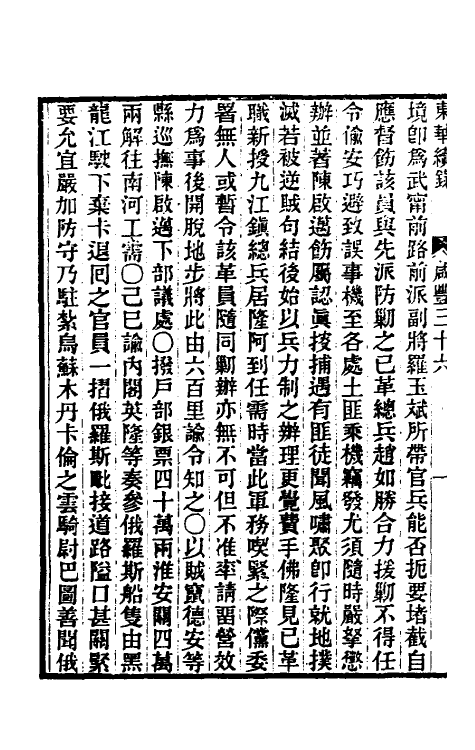 東華續錄　咸豐三十六　一
境卽爲武甯前路前派副將羅玉斌所帶官兵能否扼要堵截自
應督飭該員與先派防勦之已革總兵趙如勝合力援勦不得任
令偷安巧避致誤事機至各處土匪乘機竊發尤須隨時嚴拏懲
辦並著陳啟邁飭屬認眞捜捕遇有匪徒聞風嘯聚卽行就地撲
滅若被逆賊句結後始以兵力制之辦理更覺費手佛隆見已革
職新授九江鎭總兵居隆阿到任需時當此軍務喫緊之際儻委
署無人或暫令該革員隨同勦辦亦無不可但不准率請畱營效
力爲事後開脫地步將此由六百里諭令知之〇以賊竄德安等
縣巡撫陳啟邁下部議處〇撥戸部銀票四十萬兩淮安關四萬
兩解往南河工需〇己巳諭內閣英隆等奏參俄羅斯船隻由黑
龍江駛下棄卡退囘之官員一摺俄羅斯毗接道路隘口甚關緊
要允宜嚴加防守乃駐紮烏蘇木丹卡倫之雲騎尉巴圖善聞俄